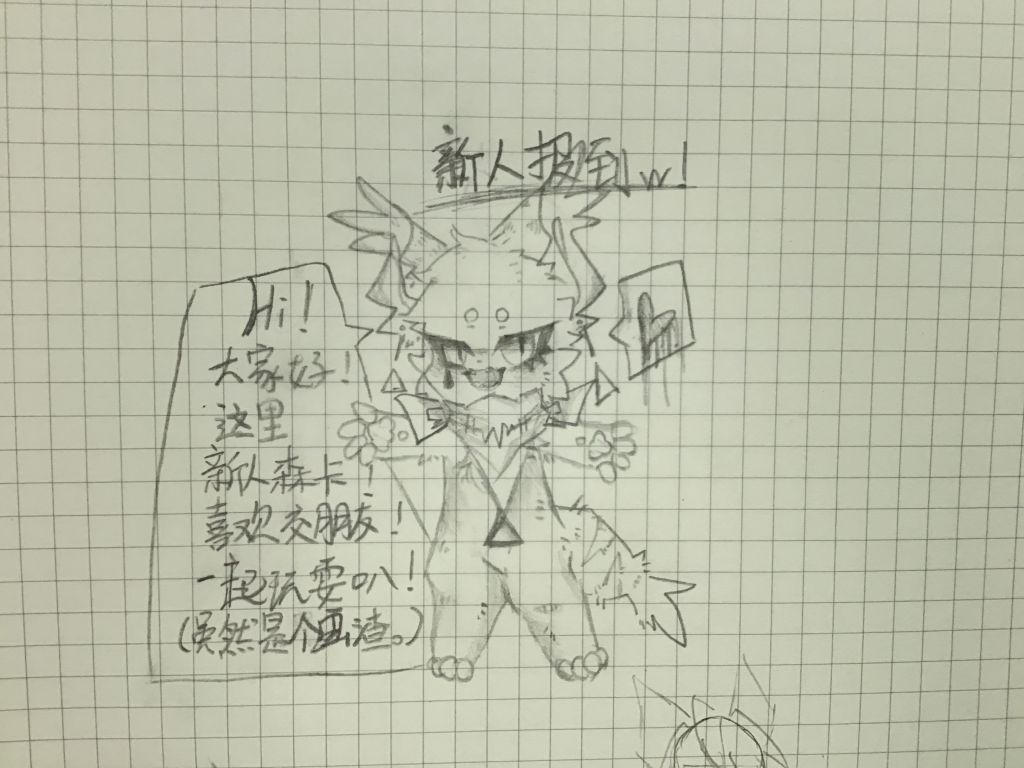 新人报到w!
Hi!
大家好!
这里
新人森卡!
喜欢交朋友!
一起玩耍叭!
(虽然是个画渣。)